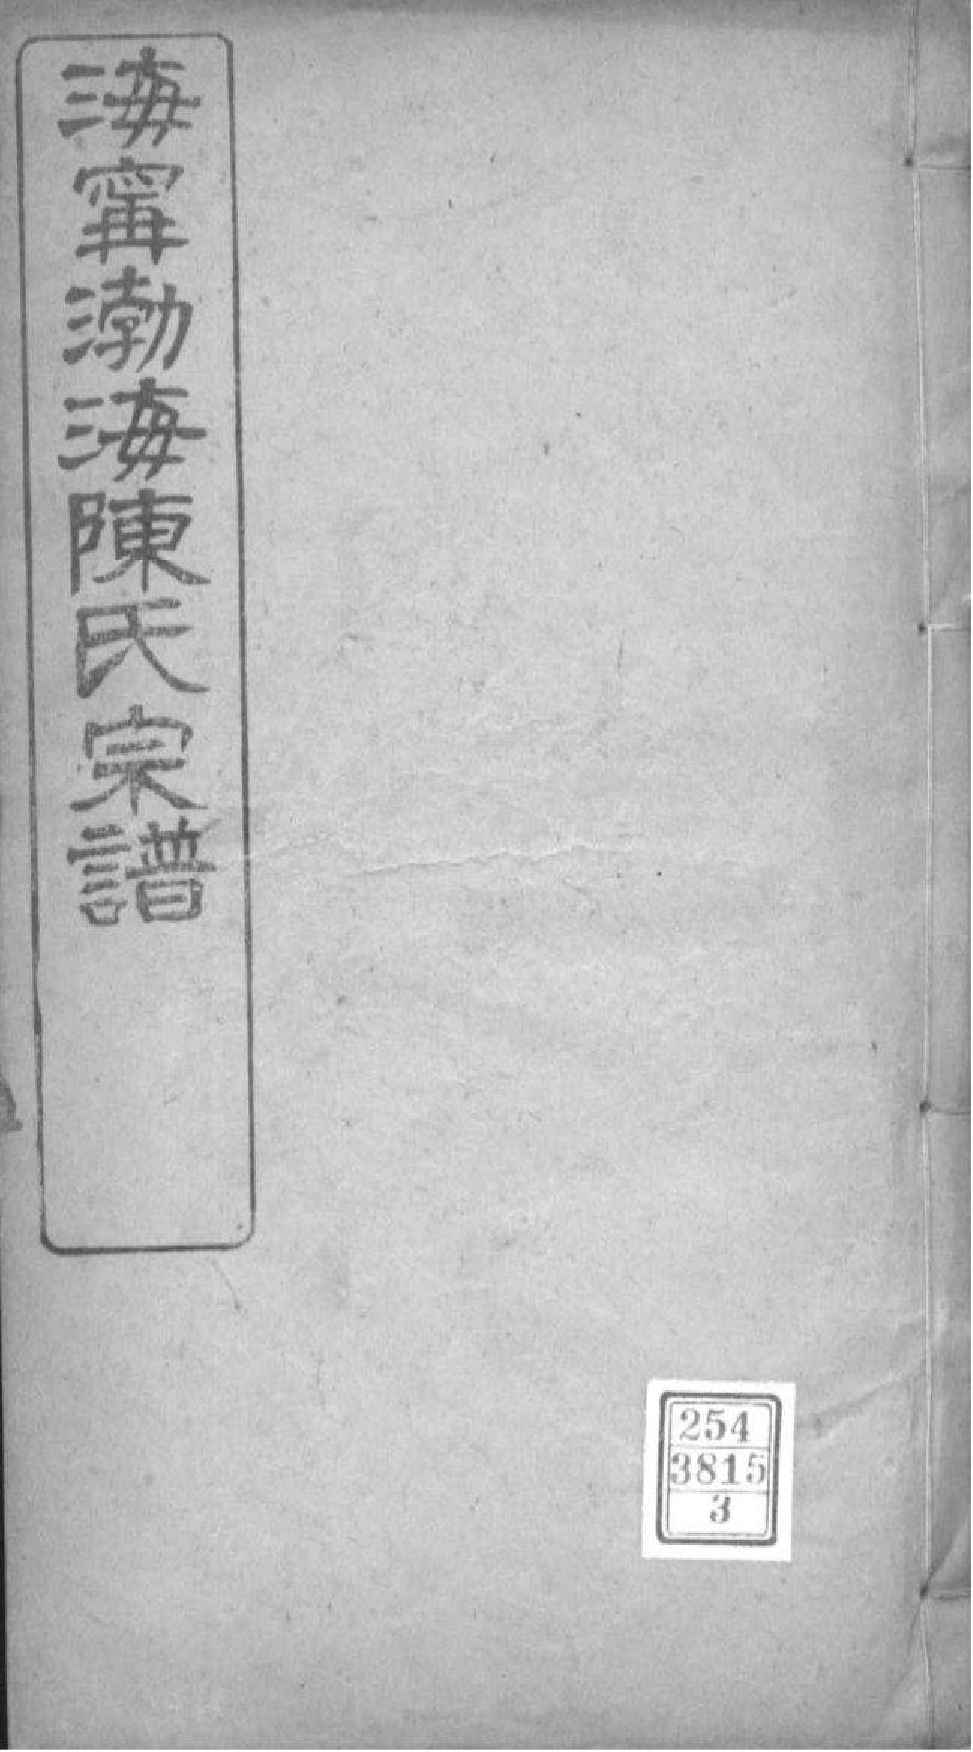 海甯渤海陳氏宗譜
254
3815
3